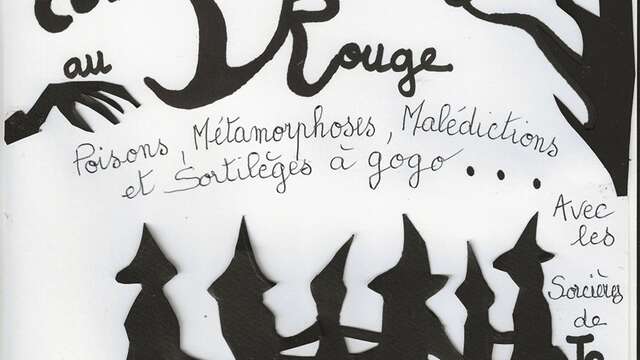 au Rouge
Poisons, Métamorphoses, Malédictions
et Sortilèges à gogo...
Avec
les
Sorcières
de